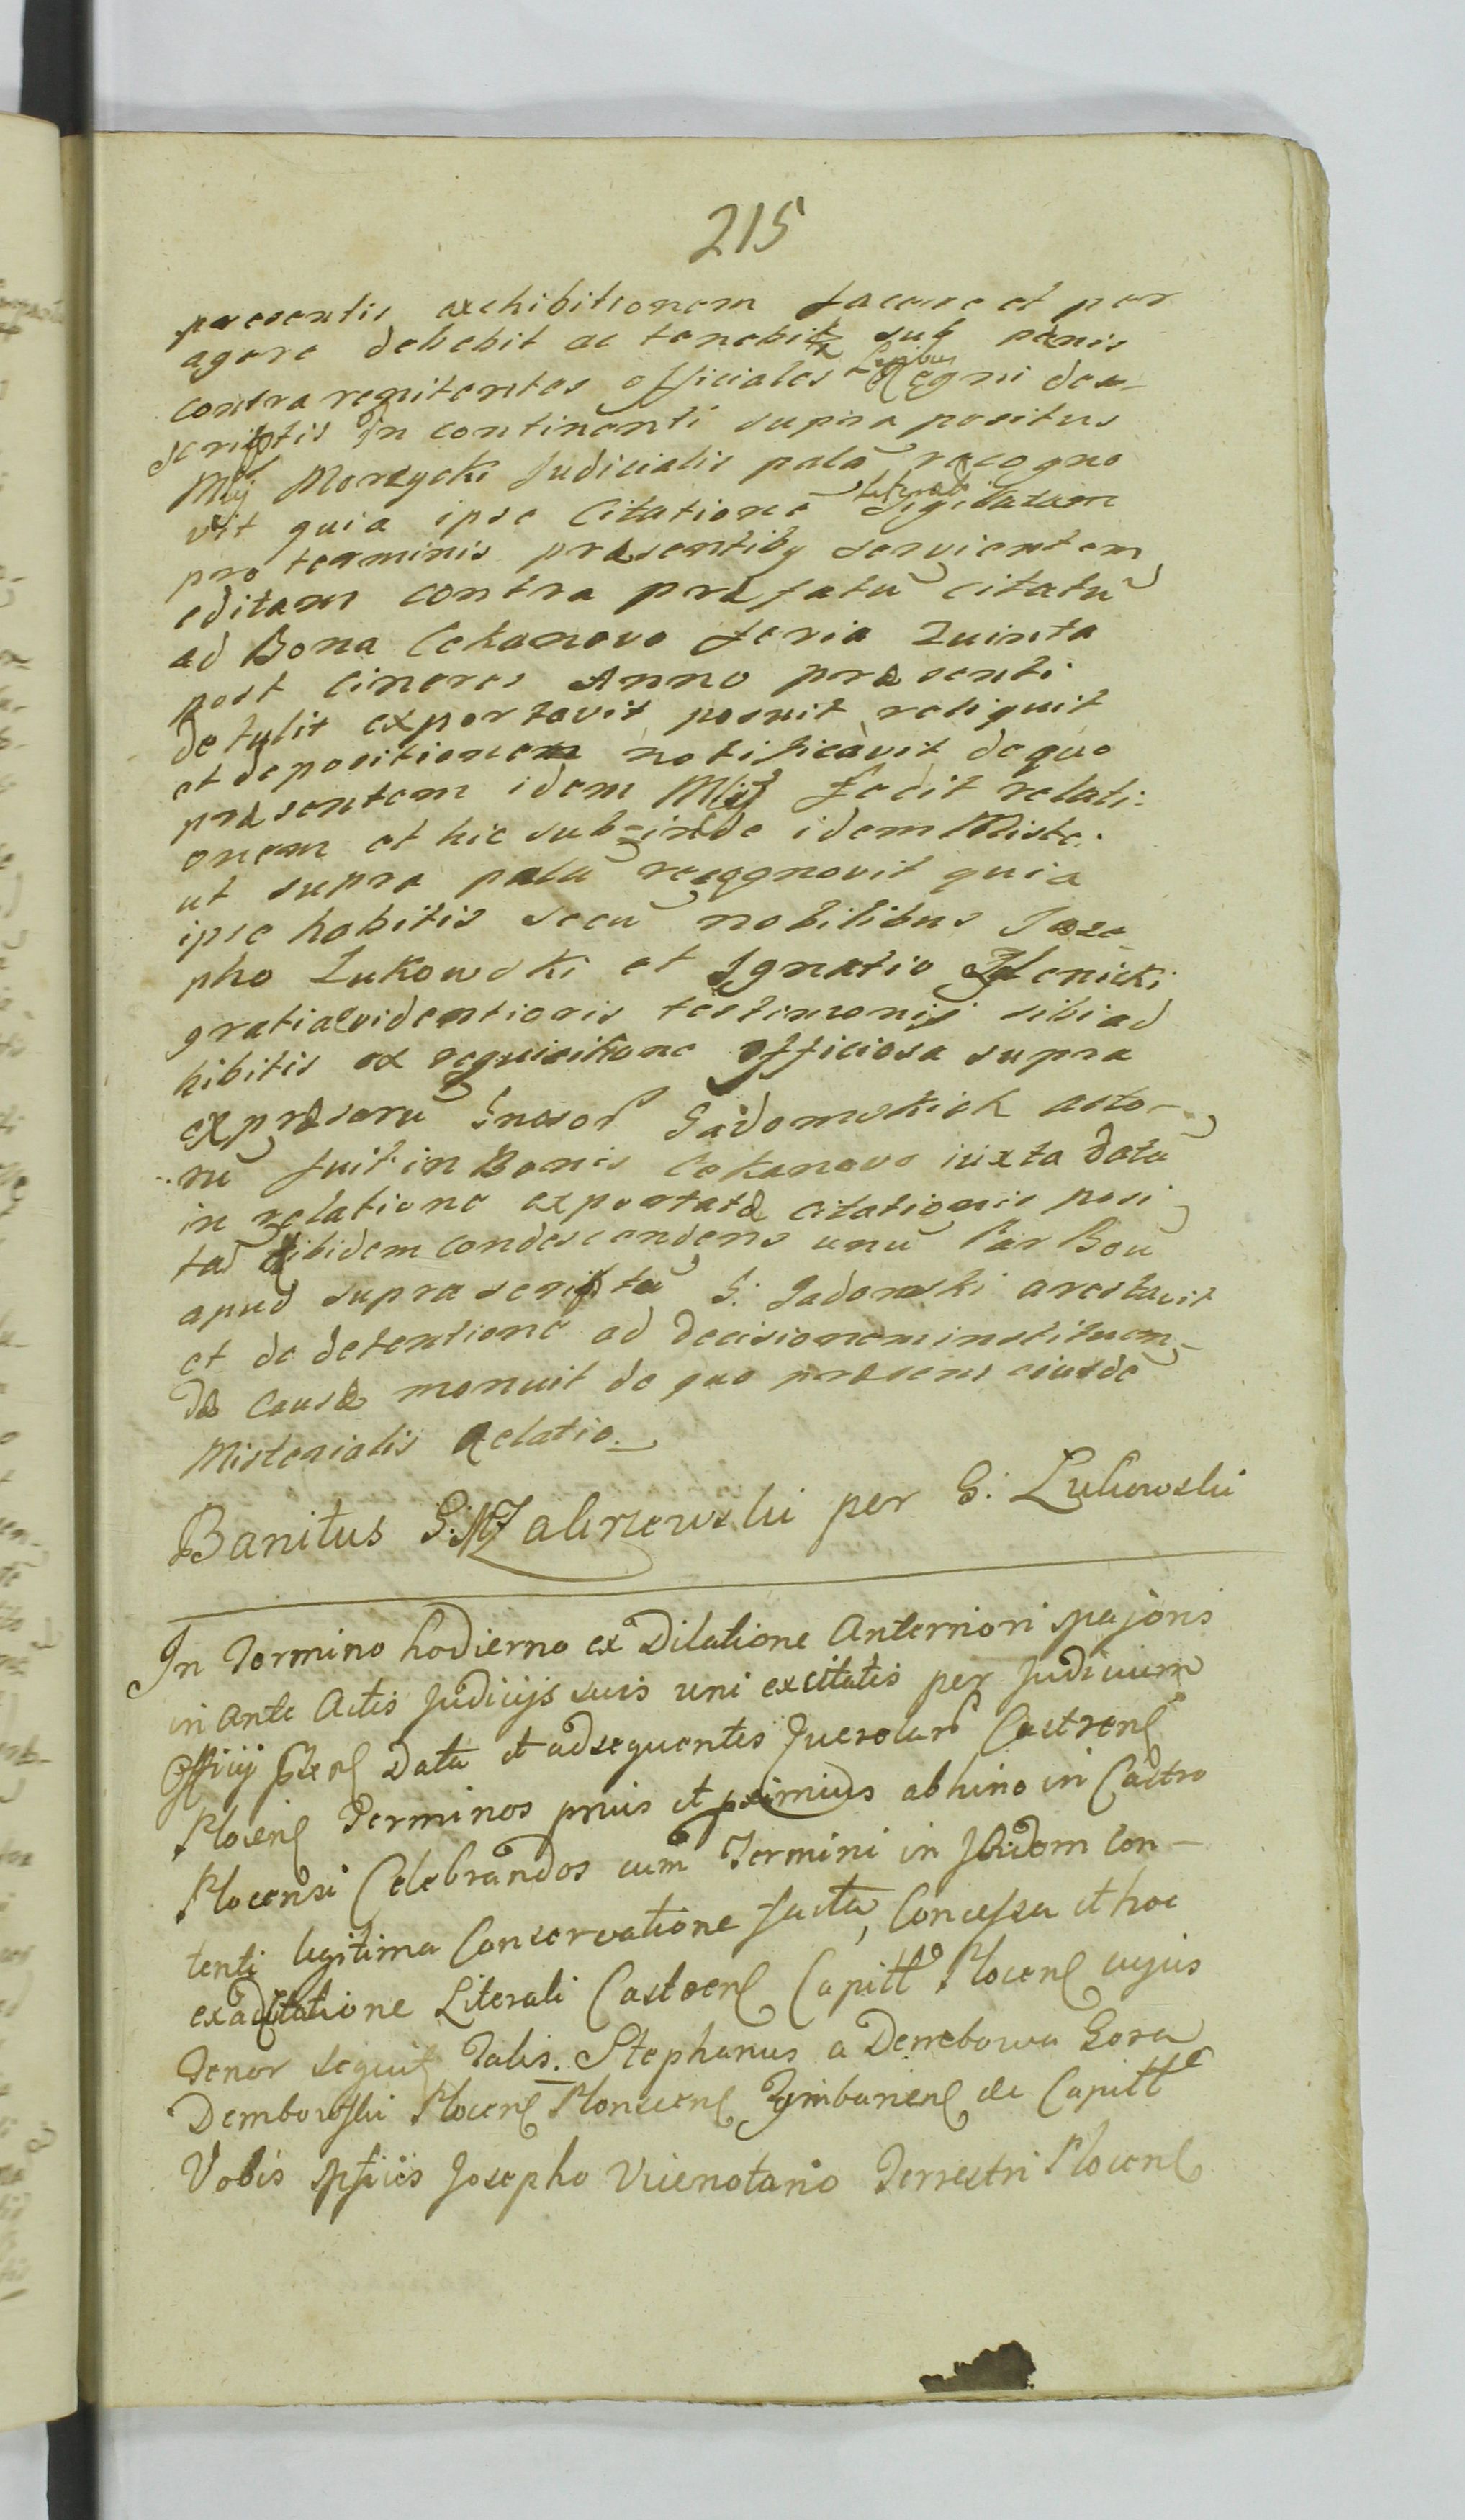 215
praesentis exhibitionem facere et per
agere debebit ac tenebit sub paenis
contra renitentes officiales Legibus Regni de
scriptis in continenti supra positus
Mij Morzycki Judicialis palã recogno
vit quia ipse Citationẽ Literalẽ Sigilatam
pro terminis praesentiby servientem
editam contra praefatũ citatũ
ad Bona Cekanovo feria Quinta
post Cineres Anno praesenti
detulit exportavit posuit reliquit
et depositionem notificavit de quo
praesentem idem Mij fecit relati:
onem et hic sub-inde idem Miste:
ut supra palã recognovit quia
ipse habitis secũ nobilibus Joze
pho Lukowski et Ignatio Zelenicki
gratia evidentioris testimonij sibi ad
hibitis ex requisitione officiosa supra
expraesorũ Gnosor Gadomskich acto-
rũ fuit in Bonis Cekanovo iuxta datã
in relatione exportatae citationis posi
tas ibidem condescendens unũ Par Boũ
apud supra scriptũ G: Gadomski arestavit
et de detentione ad decisionem instituen-
dae causae monuit de quo praesens eiusdẽ
Misterialis Relatio.
Banitus G: Zakrzewski per G: Lukowski
In Termino hodierno ex Dilatione Anteriori
in Ante Actis Judicijs suis uni excitatis per Judicium
Officij Data et ad sequentes Querelar Castrens
Plocens Terminos prius et primius abhinc in Castro
Plocensi Celebrandos cum Termini in Ibidem Con-
tenti legitima Conservatione facta, Concessa et hoc
ex ad Citatione Literali Castrens Capitl Plocens cujus
Tenor sequit Talis. Stephanus a Dembowa Gora
Dembowski Plocens Plonscens Zymbanens de Capitl
Vobis Josepho Vicenotario Terrestri Plocens